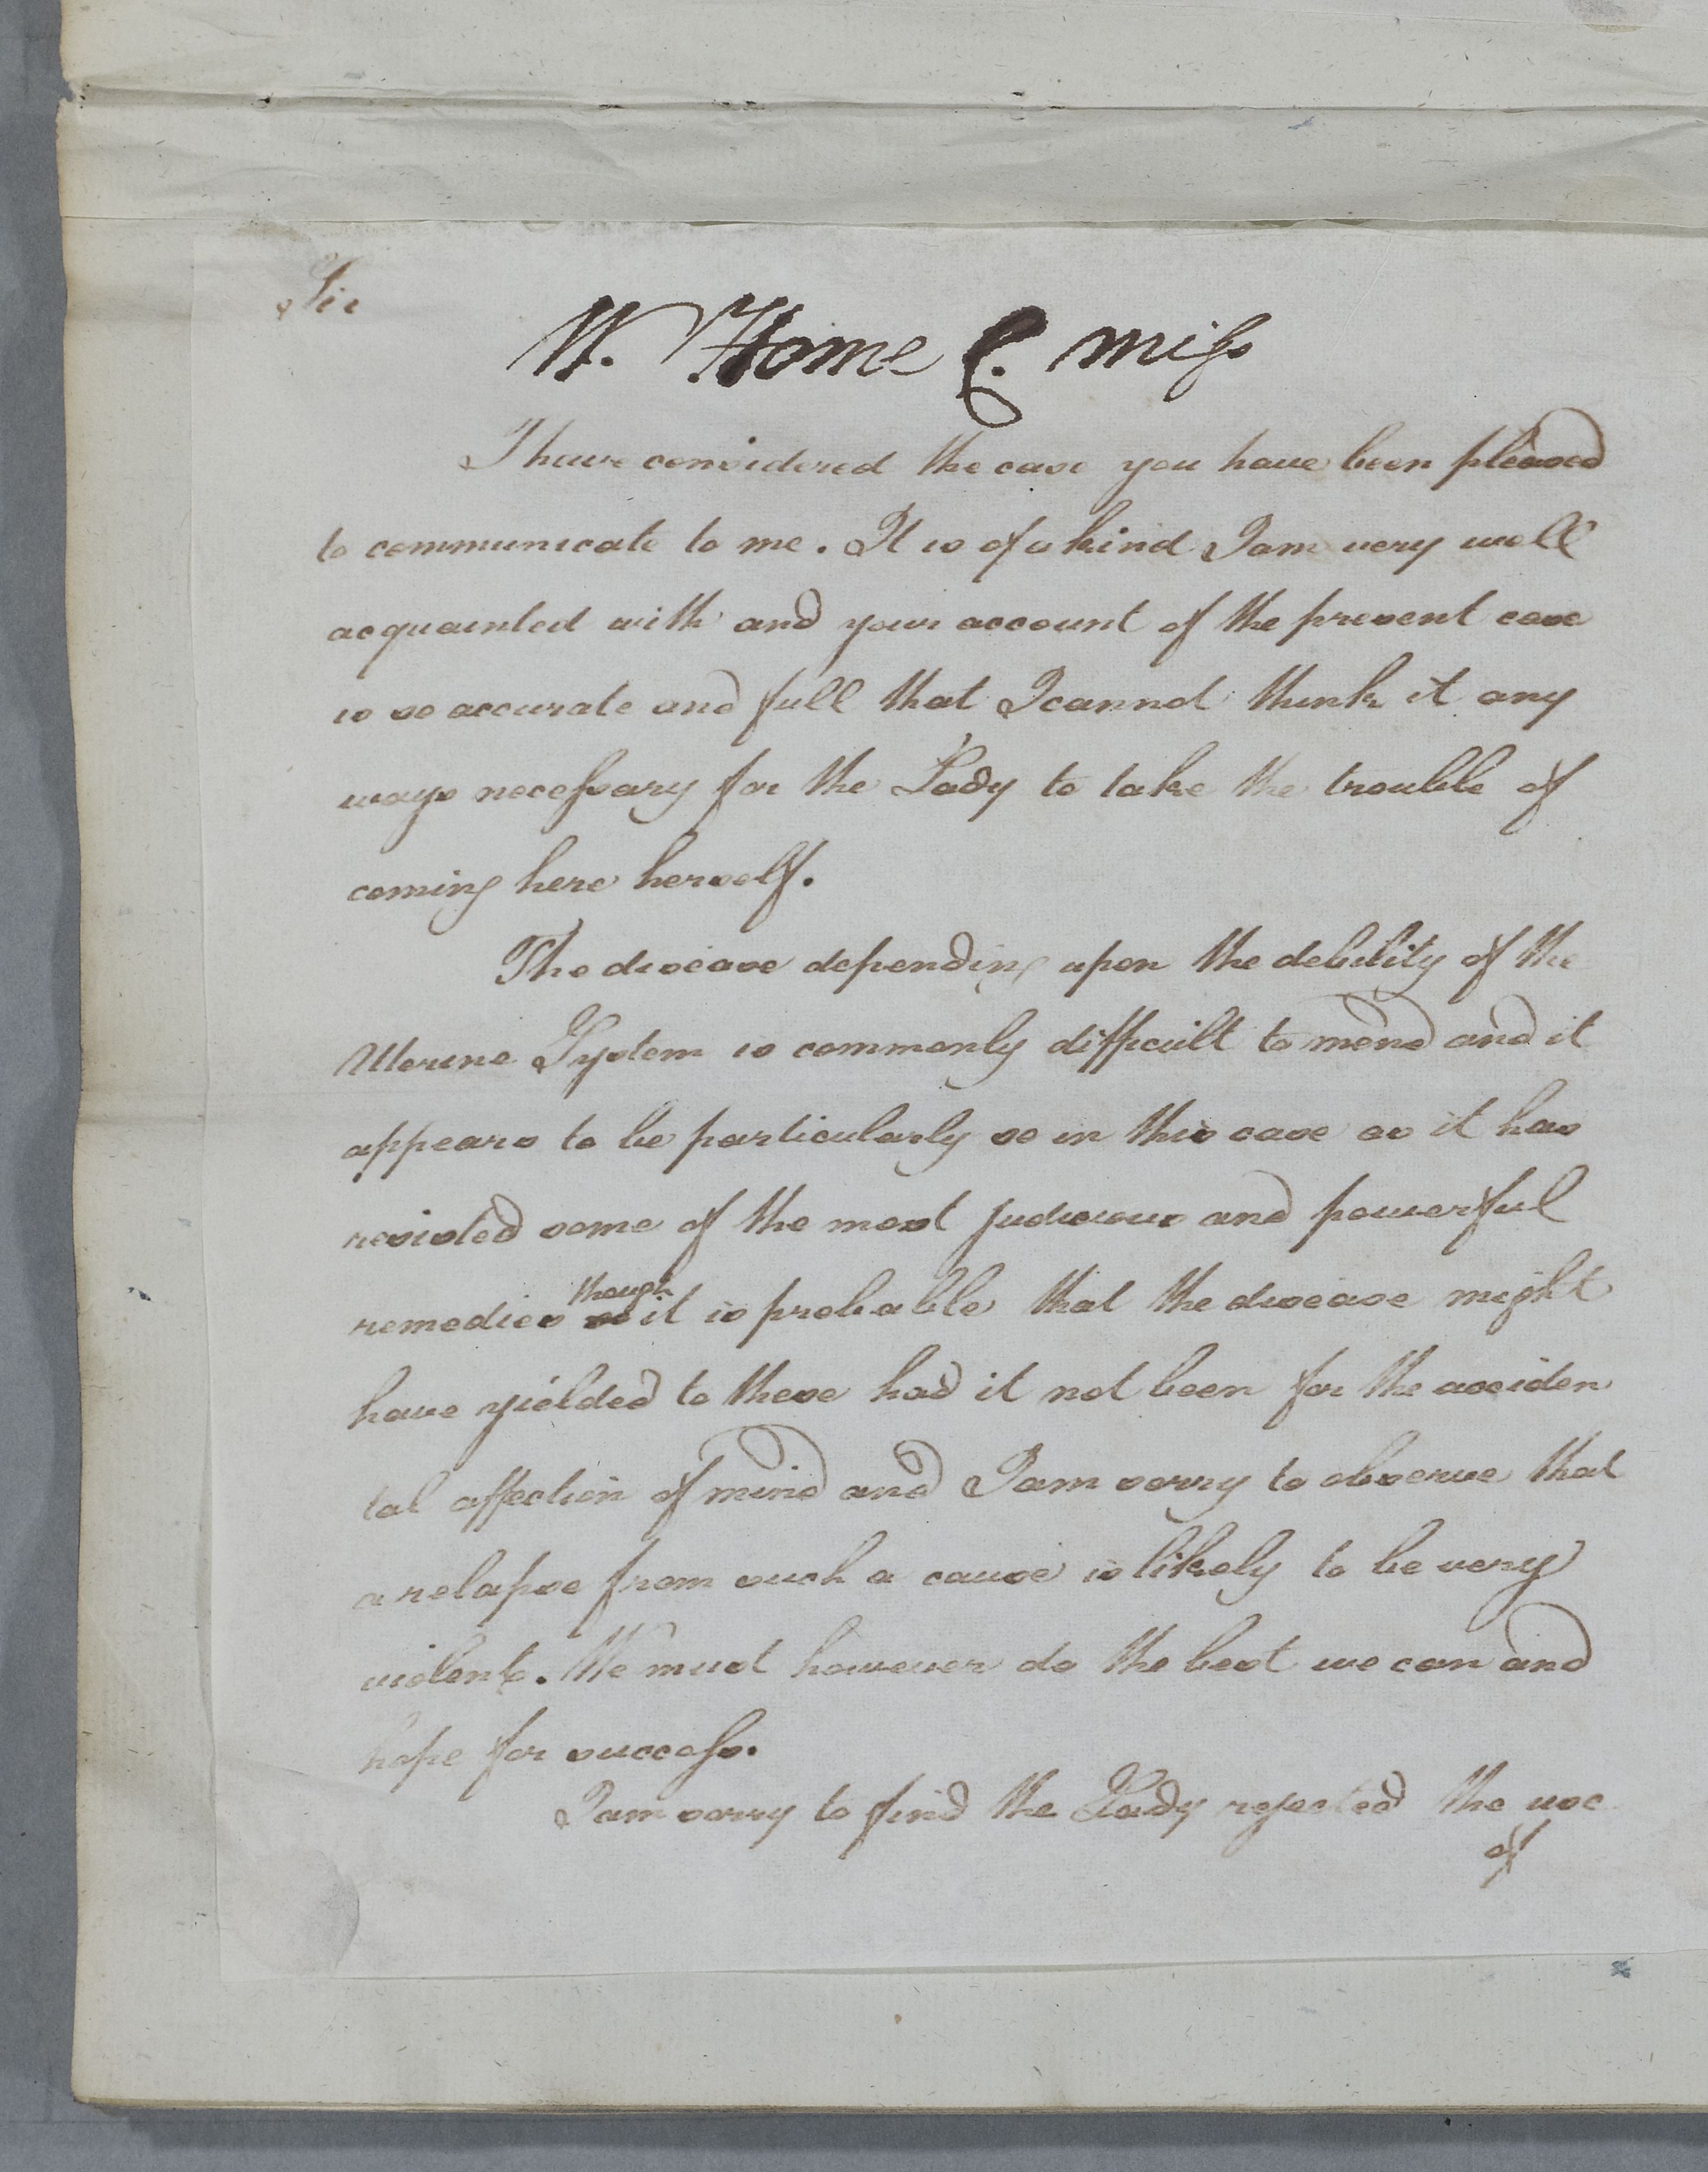 Sir
W. Home C. miss
I have considered the case you have been pleased
to communicate to me. It is of a kind I am very well
acquainted with and your account of the present case
is so accurate and full that I cannot think it any
ways necessary for the Lady to take the trouble of
coming here herself.
The disease depending upon the debility of the
Uterine System is commonly difficult to mend and it
appears to be particularly so in this case as it has
resisted some of the most judicious and powerful
though
remedies it is probable that the disease might
have yielded to these had it not been for the acciden
tal affection of mind and I am sorry to observe that
a relapse from such a cause is likely to be very
violent. We must however do the best we can and
hope for success.
I am sorry to find the Lady rejected the use
of